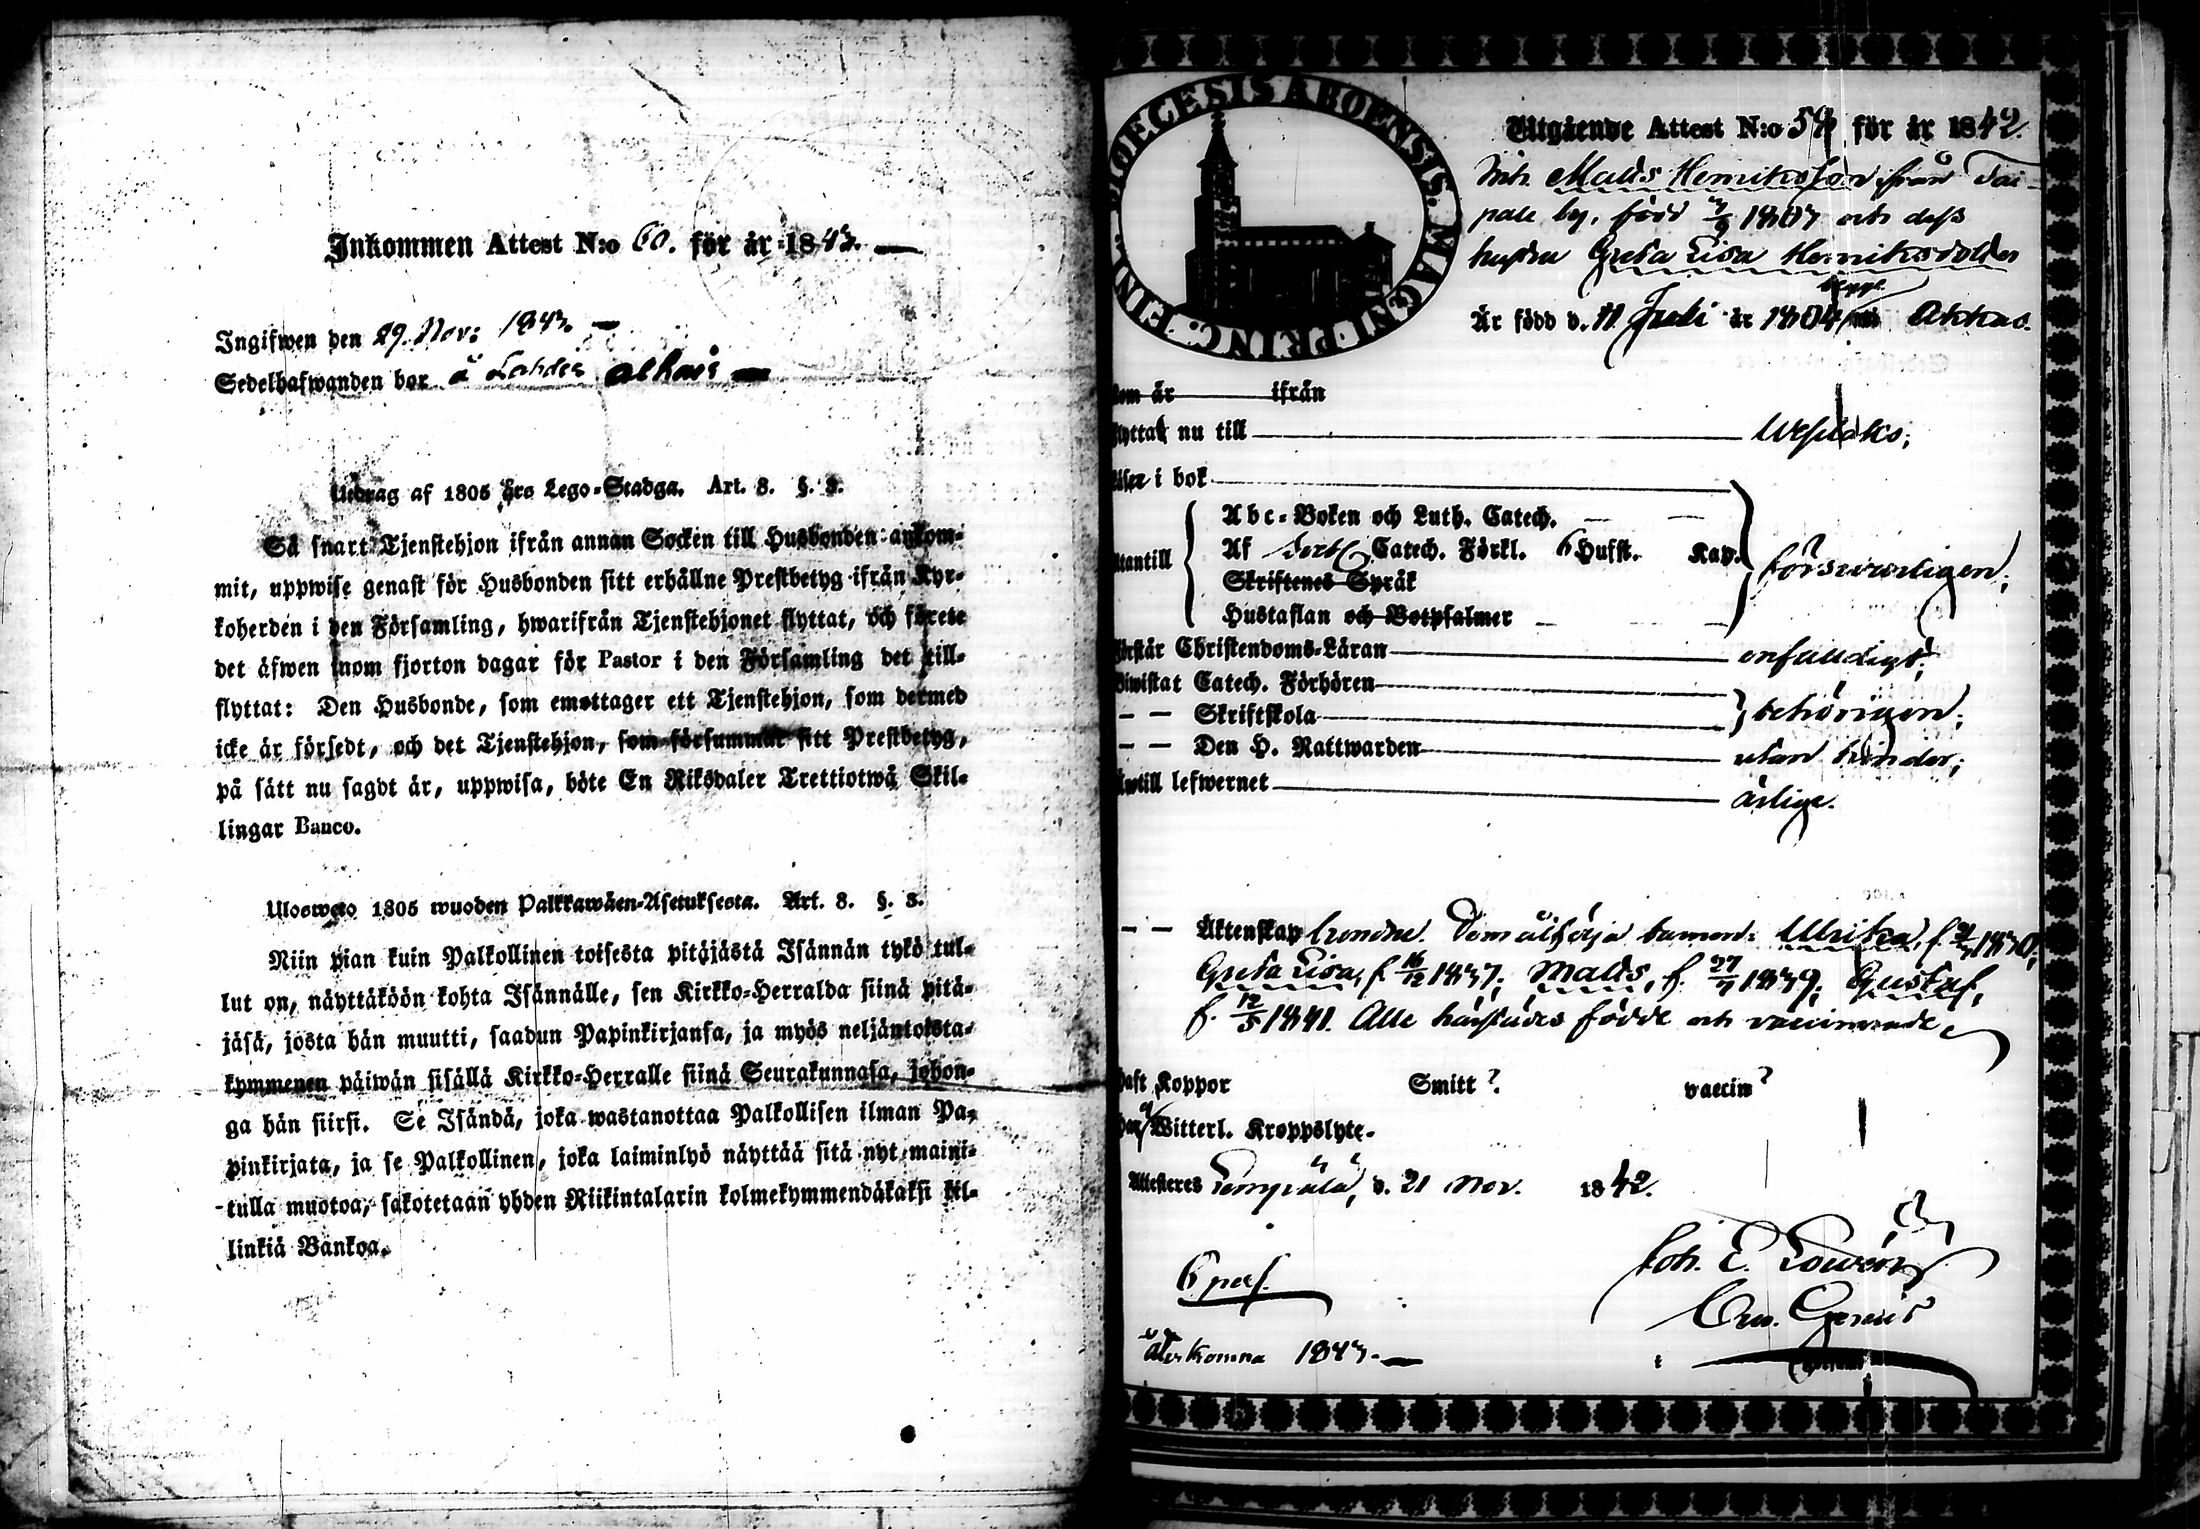 Inkommen Attest N:o 60. för år 1843. —
Ingifwen den 29. Nov: 1843. —
Sedelhafwanden bor å Lahdis
Utdrag af 1805 års Lego-Stadga. Art. 8. §. 3.
Så snart Tjenstehjon ifrån annan Socken till Husbonden ankom-
mit, uppwise genast för Husbonden sitt erhållne Prestbetyg ifrån Kyr-
koherden i den Församling, hwarifrån Tjenstehjonet flyttat, och förete
det äfwen inom fjorton dagar för Pastor i den Församling det till-
flyttat: Den Husbonde, som emottager ett Tjenstehjon, som dermed
icke är försedt, och det Tjenstehjon, som försummar sitt Prestbetyg,
på sätt nu sagdt är, uppwisa, böte En Riksdaler Trettiotwå Skil-
lingar Banco.
Ulosweto 1805 wuoden Palkkawäen-Asetuksesta. Art. 8. §. 3.
Niin pian kuin Palkollinen toisesta pitäjästä Isännän tykö tul-
lut on, näyttäköön kohta Isännälle, sen Kirkko-Herralda siinä pitä-
jäsä, josta hän muutti, saadun Papinkirjansa, ja myös neljäntoista-
kymmenen päiwän sisällä Kirkko-Herralle siinä Seurakunnasa, johon-
ga hän siirsi. Se Isändä, joka wastanottaa Palkollisen ilman Pa-
pinkirjata, ja se Palkollinen, joka laiminlyö näyttää sitä nyt maini-
tulla muotoa, sakotetaan yhden Riikintalarin kolmekymmendäkaksi kil-
linkiä Bankoa.
DIOEGESIS ABOENSIS. MAGNI PRINC. FINL.
Utgående Attest N:o 54 för år 1842.
Inh. Matts Henriksson från Tai-
pale by, född 1807 och dess
hustru Greta Lisa Henriksdotter
begge
Är född d. 11 Juli år 1804 Akkas.
som är ifrån
flyttat nu till Urjala
Läser i bok
Utantill
Abc-Boken och Luth. Catech.
Af Catech. Förkl. 6 Hufst. Kap.
Skriftenes Språk
Hustaflan och Botpsalmer
försvarligen;
Förstår Christendoms-Läran enfaldigt;
Biwistat Catech. Förhören
— — Skriftskola behörigen;
— — Den H. Nattwarden utan hinder;
Intill lefwernet ärlige.
— — Äktenskap Som åtfölja barnen: Ulrika, f. 1830;
Greta Lisa, f. 16/12 1837; Matts, f. 27/7 1839; Gustaf,
f. 12/5 1841. Alle härstädes födde och vaccinerade
Haft Koppor Smitt? vaccin?
Har Witterl. Kroppslyte.
Attesteres Lempälä, d. 21 Nov. 1842.
6 pers.
Joh. E. Lowén
återkomna 1843. —